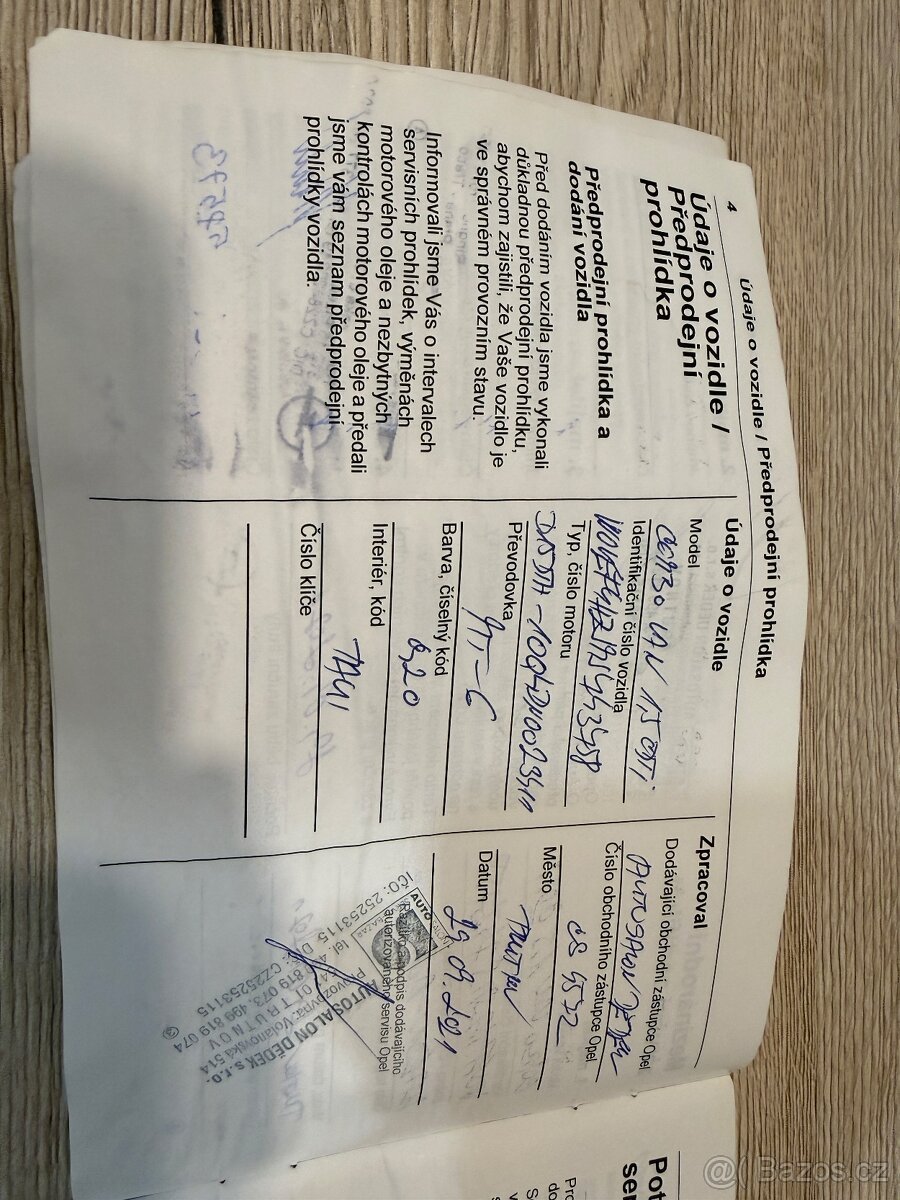 4
Údaje o vozidle / Předprodejní prohlídka
Údaje o vozidle /
Předprodejní
prohlídka
Předprodejní prohlídka a
dodání vozidla
Před dodáním vozidla jsme vykonali
důkladnou předprodejní prohlídku,
abychom zajistili, že Vaše vozidlo je
ve správném provozním stavu.
Informovali jsme Vás o intervalech
servisních prohlídek, výměnách
motorového oleje a nezbytných
kontrolách motorového oleje a předali
jsme vám seznam předprodejní
prohlídky vozidla.
Údaje o vozidle
Model
VAN 1.5
Identifikační číslo vozidla
Typ, číslo motoru
Převodovka
MT-6
Barva, číselný kód
Interiér, kód
Číslo klíče
Zpracoval
Dodávající obchodní zástupce Opel
AUTOSALON DĚDEK
Číslo obchodního zástupce Opel
Město
TRUTNOV
Datum
29.09.2021
Razítko a podpis dodávajícího
autorizovaného servisu Opel
AUTO
BAZAR
AUTOSALON DĚDEK s.r.o.
Provozovna: Volanovská 514
541 01 TRUTNOV
819 073, 499 819 074
IČO: 25253115 DIČ: CZ25253115
Pot
ser
@ Bazos.cz